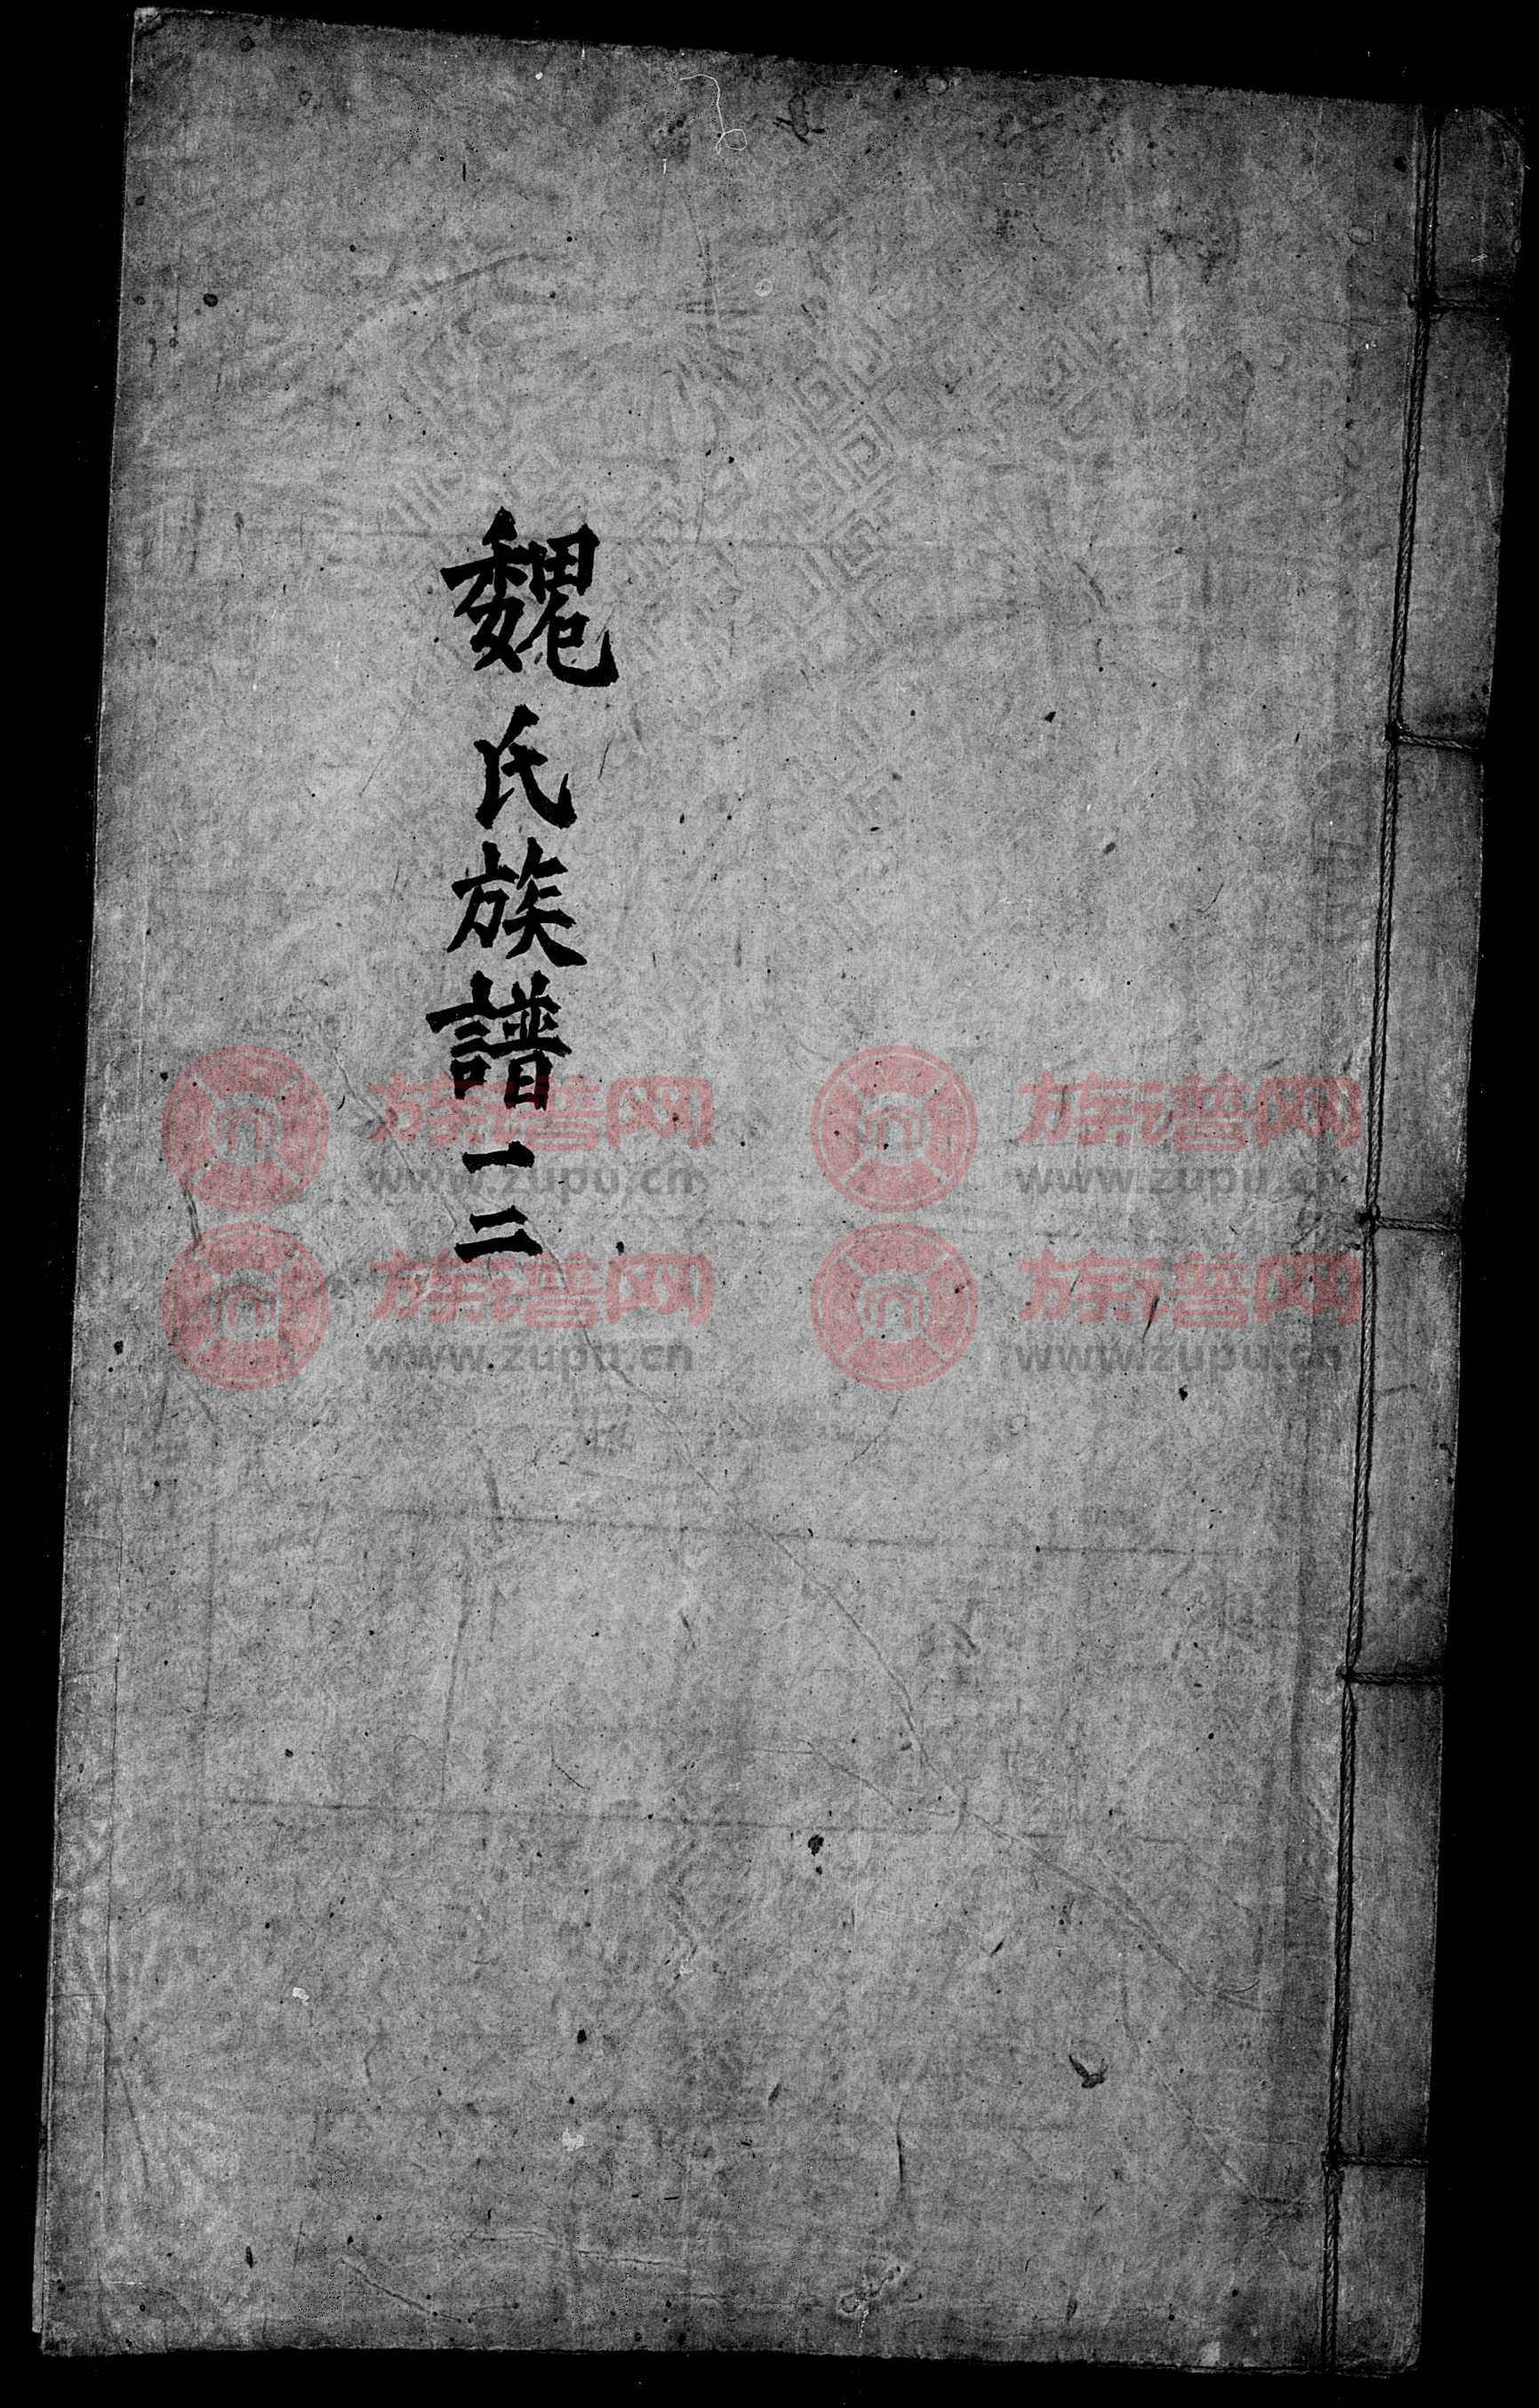 魏氏族譜一二
族谱网
www.zupu.cn
族谱网
www.zupu.cn
族谱网
www.zupu.cn
族谱网
www.zupu.cn